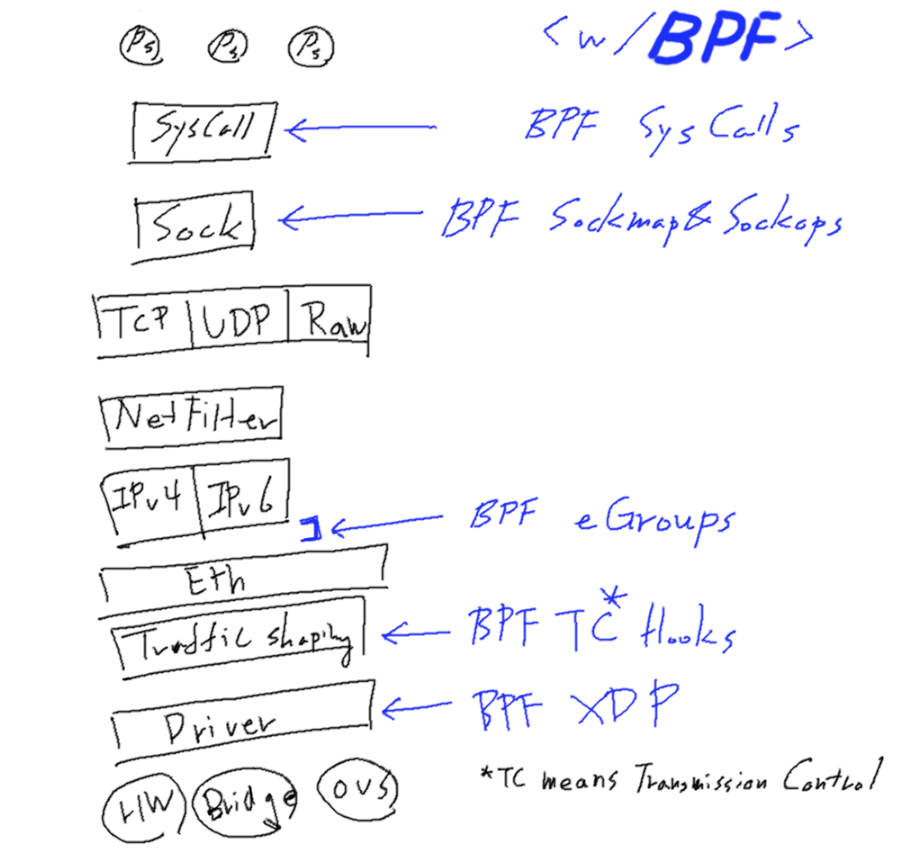 Ps Ps Ps <w/BPF>
SysCall BPF SysCalls
Sock BPF Sockmap&Sockops
TCP UDP Raw
NetFilter
IPv4 IPv6
BPF eGroups
Eth
Traffic shaping BPF TC* Hooks
Driver BPF XDP
*TC means Transmission Control
HW Bridge OVS